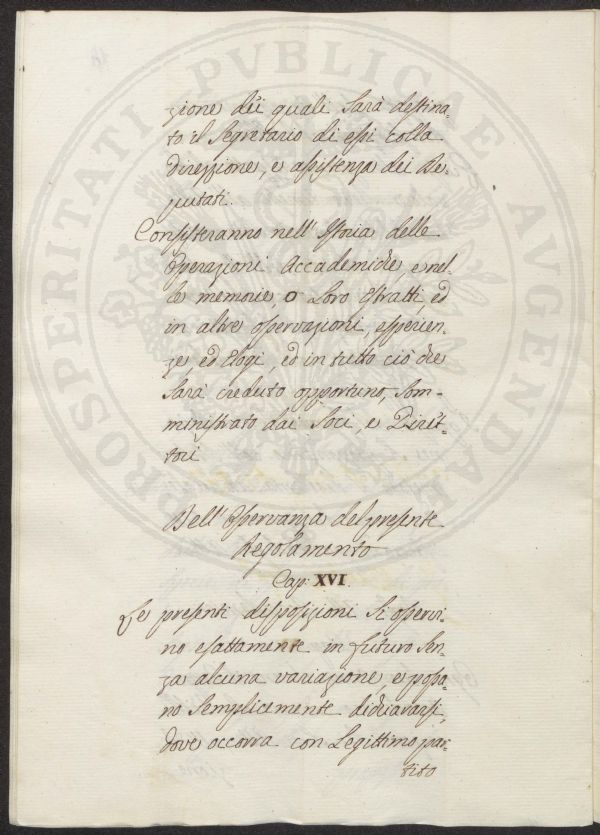 PROSPERITATI PVBLICAE AVGENDAE
zione dei quali sarà destina-
to il Segretario di essi colla
direzzione, e assistenza dei De-
putati.
Consisteranno nell'Istoria delle
Operazioni Accademiche, e nel-
le memorie, o loro Estratti, ed
in altre osservazioni, esperien-
ze, ed Elogj, ed in tutto ciò che
sarà creduto opportuno, som-
ministrato dai Soci, e Dirett-
tori
Dell'Osservanza del presente
Regolamento
Cap: XVI.
Le presenti disposizioni si osservi-
no esattamente in futuro sen-
za alcuna variazione, e possa-
no semplicemente dichiararsi,
dove occorra con Legittimo par-
tito